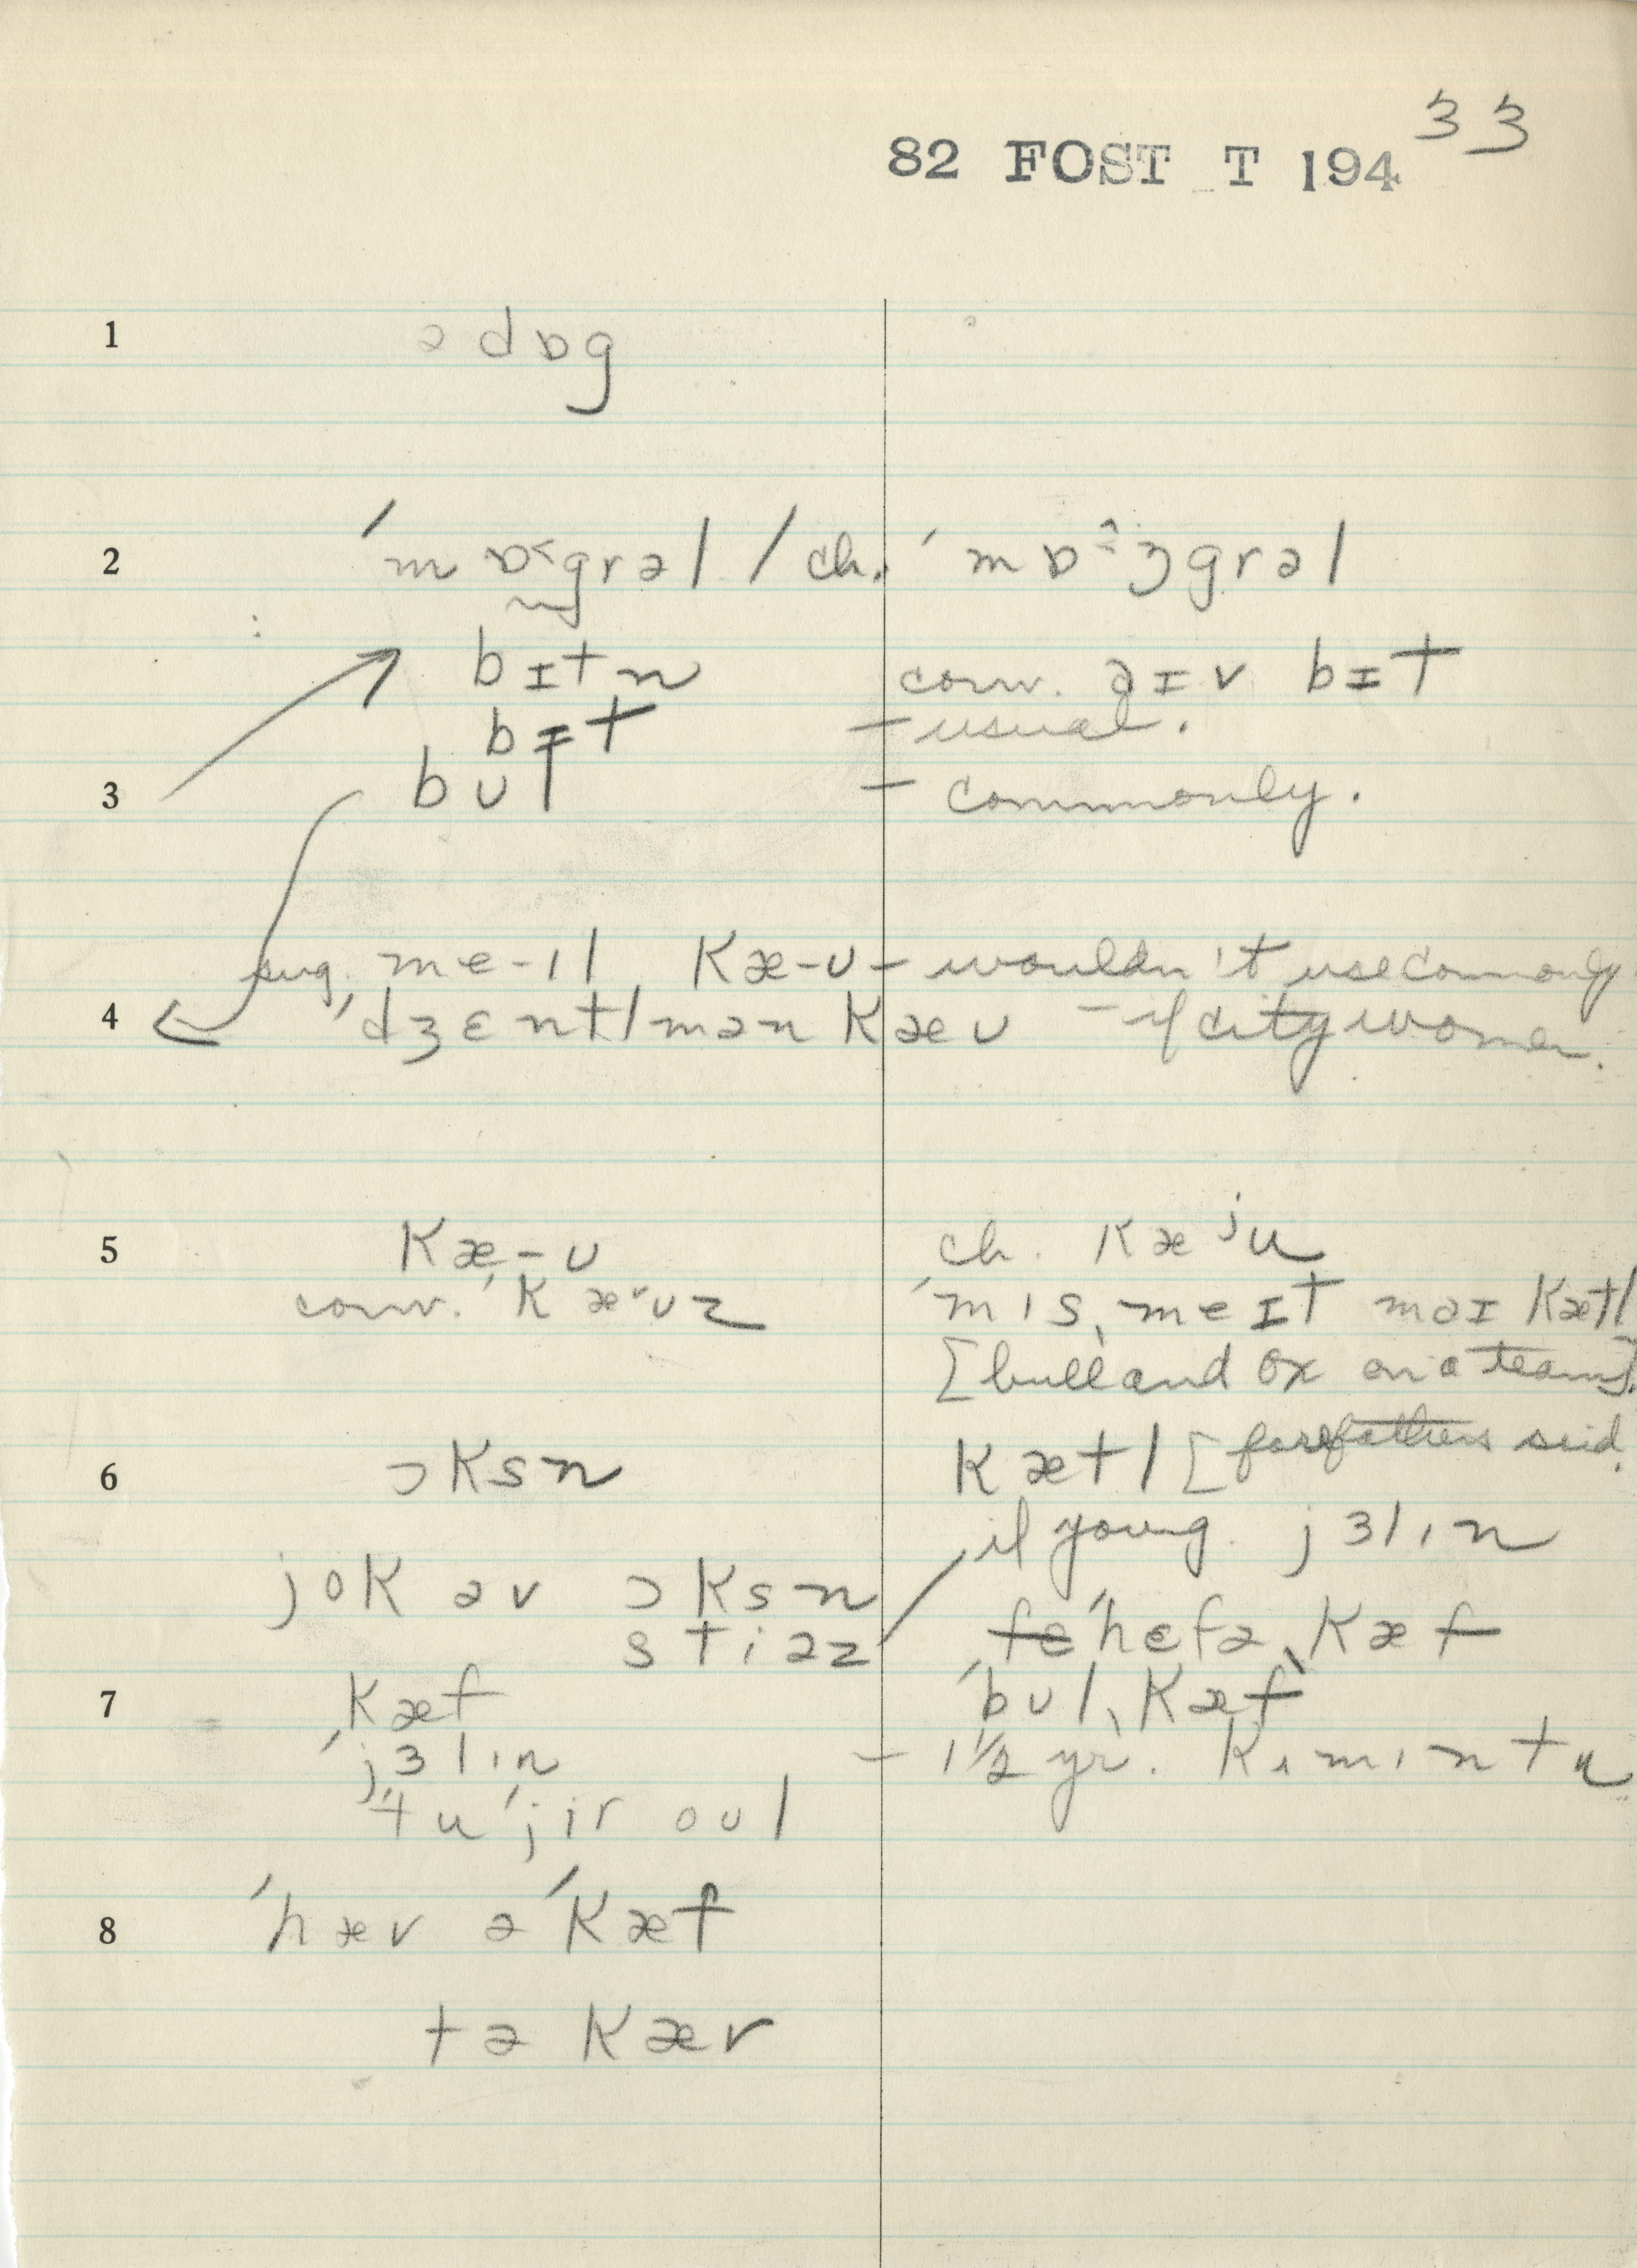 33
82 FOST T 194
1 ə dɒg
2 ˈmɒ˂grəl / ch. ˈmɒ^ʒgrəl
bɪtn conv. əɪv bɪt
bɪt – usual.
3 bʊl – commonly.
sug. me-ɪl Kæ-ʊ – wouldn't use commonly
4 ˈdʒɛntlmən Kæʊ – if city women.
5 Kæ-ʊ ch. Kæʲu
conv. ˈKæᵛʊz ˈmɪsˌmeɪt maɪ Kætl
[bull and ox on a team].
6 ɔKsn Kætl [forefathers said.
if young. jɜlɪn
joK əv ɔKsn
stiəz ˈhɛfəˌKæf
7 Kæf ˈbʊlˌKæf
ˈjɜlɪn – 1½ yr.
ˈtuˈjir oʊl
8 ˈhæv əˈKæf
tə Kæv